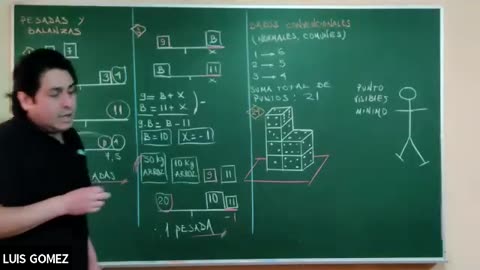 PESADAS Y
BALANZAS
7
9 4
11
9
4,5
9 B
X
B 11
X
9 = B + X
B = 11 + X
9-B = B-11
B=10 X=-1
50 kg
ARROZ
10 kg
ARROZ
9 11
20 10 11
-1
∴ 1 PESADA
DADOS CONVENCIONALES
(NORMALES, COMUNES)
1 → 6
2 → 5
3 → 4
SUMA TOTAL DE
PUNTOS : 21
PUNTO
VISIBLES
MINIMO
LUIS GOMEZ